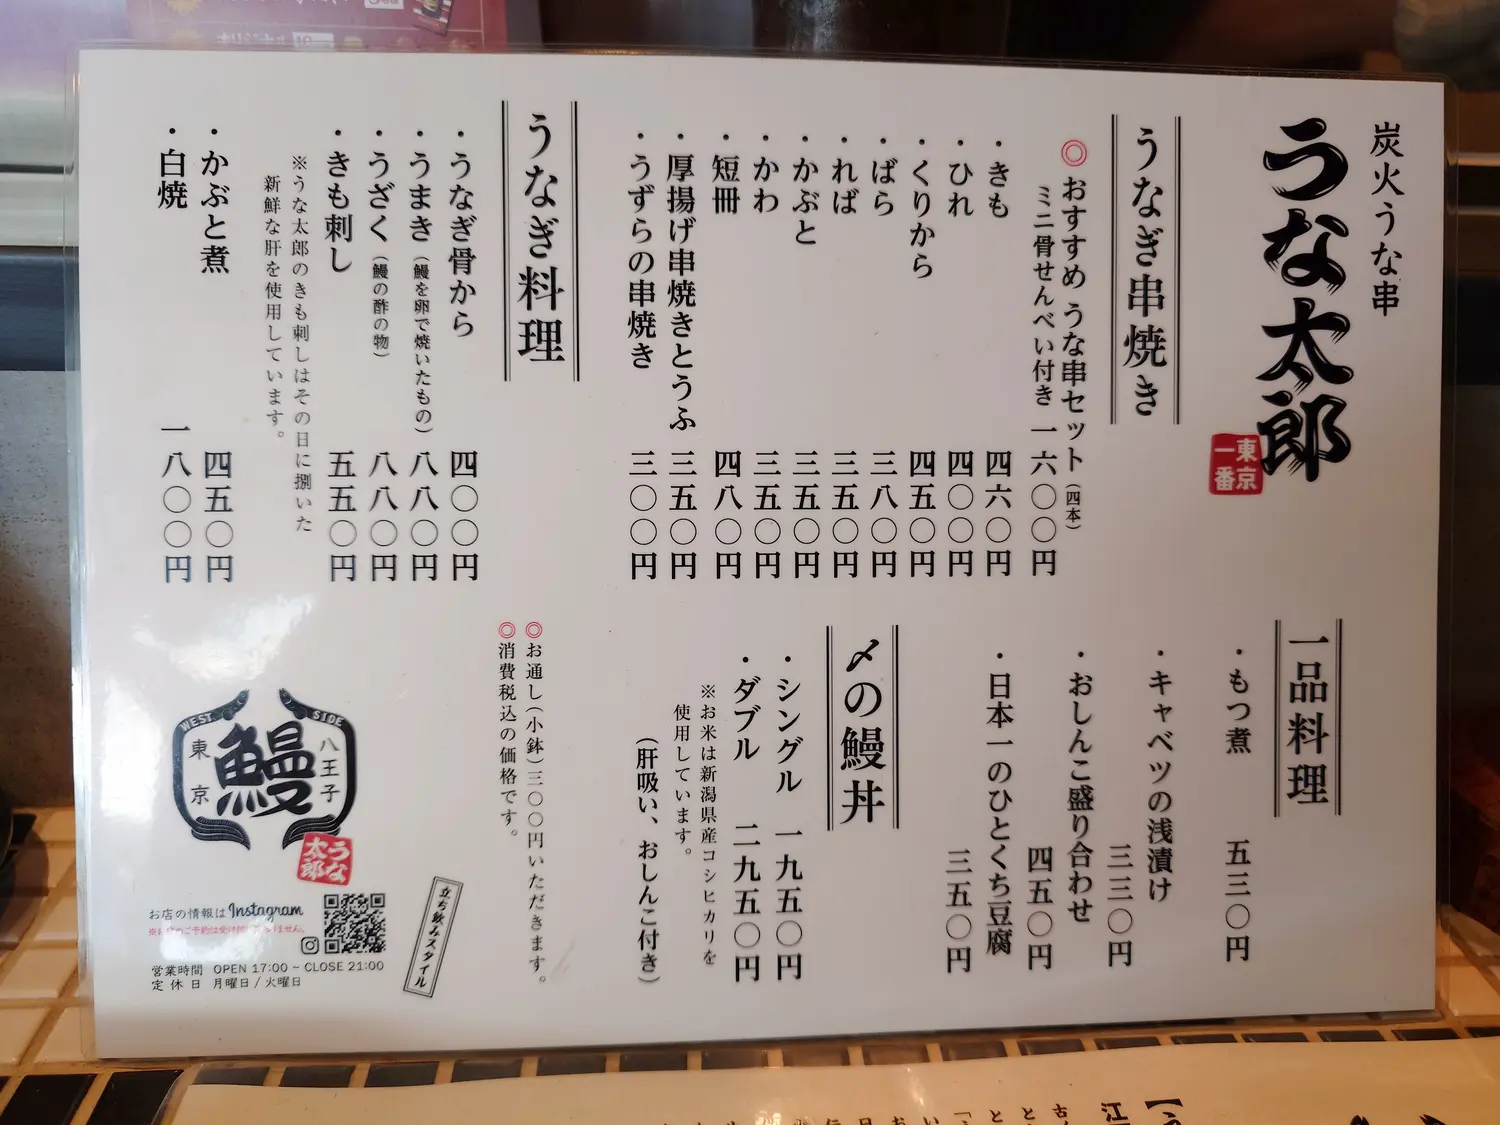 炭火うな串
うな太郎
東京一番
うなぎ串焼き
◎おすすめ うな串セット(四本)
ミニ骨せんべい付き 一六〇〇円
・きも 四六〇円
・ひれ 四〇〇円
・くりから 四五〇円
・ばら 三八〇円
・れば 三五〇円
・かぶと 三五〇円
・かわ 三五〇円
・短冊 四八〇円
・厚揚げ串焼きとうふ 三五〇円
・うずらの串焼き 三〇〇円
うなぎ料理
・うなぎ骨から 四〇〇円
・うまき(鰻を卵で焼いたもの) 八八〇円
・うざく(鰻の酢の物) 八八〇円
・きも刺し 五五〇円
※うな太郎のきも刺しはその日に捌いた
新鮮な肝を使用しています。
・かぶと煮 四五〇円
・白焼 一八〇〇円
一品料理
・もつ煮 五三〇円
・キャベツの浅漬け 三三〇円
・おしんこ盛り合わせ 四五〇円
・日本一のひとくち豆腐 三五〇円
〆の鰻丼
・シングル 一九五〇円
・ダブル 二九五〇円
※お米は新潟県産コシヒカリを
使用しています。
(肝吸い、おしんこ付き)
◎お通し(小鉢)三〇〇円いただきます。
◎消費税込の価格です。
立ち飲みスタイル
WEST SIDE
八王子
鰻
東京
うな太郎
お店の情報は Instagram
営業時間 OPEN 17:00 ~ CLOSE 21:00
定休日 月曜日/火曜日